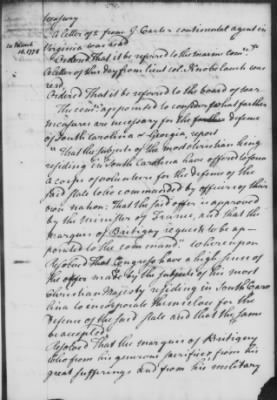 treasury
A letter of 2 from J. Carter continental agent in
Virginia was read
Ordered That it be referred to the marine comee.
A letter of this day from lieut col. Knobelauch was
read
Ordered That it be referred to the board of war.
The comee. appointed to consider what farther
measures are necessary for the defense
of South Carolina & Georgia, report
"That the subjects of his most christian king
residing in South Carolina have offered to form
a corps of volunteers for the defense of the
said state to be commanded by officers of their
own nation: That the said offer is approved
by the minister of France, and that the
marquis of Bretigny requests to be ap-
pointed to the command: whereupon
Resolved That Congress have a high sense of
the offer made by the subjects of his most
christian Majesty residing in South Caro
lina to incorporate themselves for the
defense of the said state and that the same
be accepted.
Resolved That the marquis of Bretigny
who from his generous sacrifices from his
great sufferings and from his military